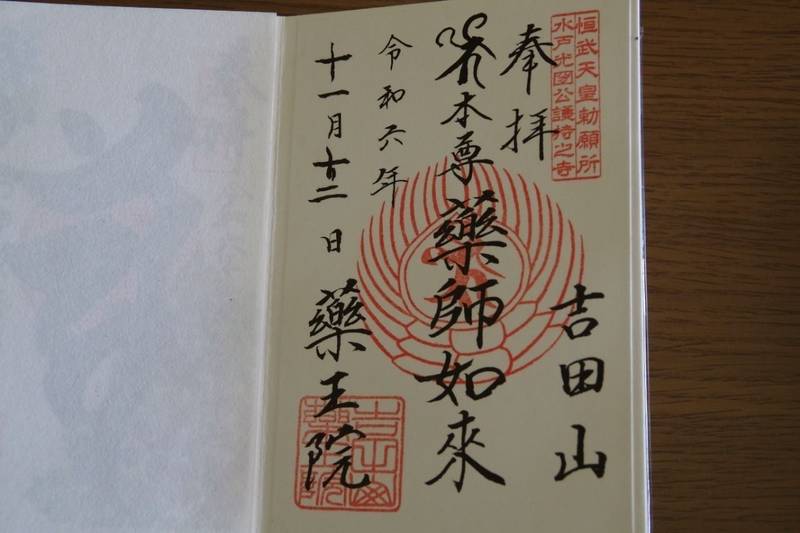 恒武天皇勅願所
水戸光圀公護持之寺
奉拝
吉田山
本尊 藥師如來
令和六年
十一月十二日
藥王院